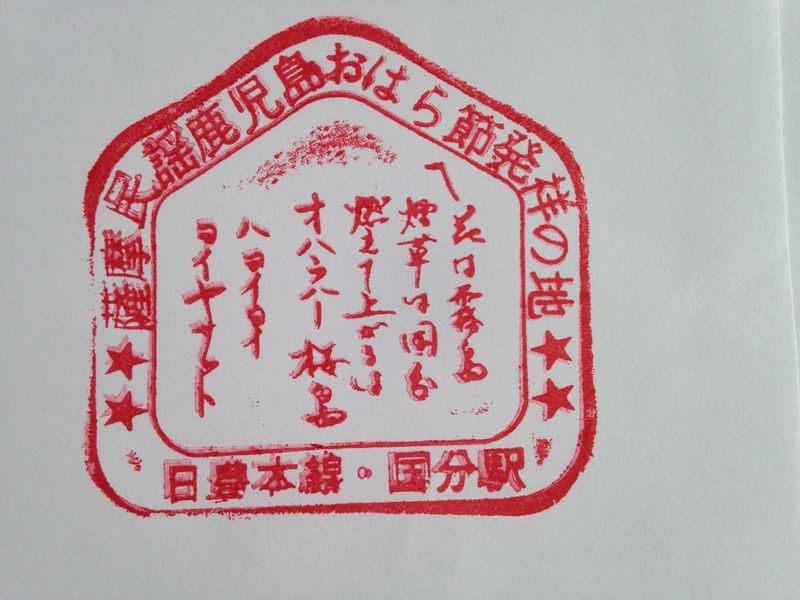 薩摩民謡鹿児島おはら節発祥の地
〽
花は霧島
煙草は国分
燃えて上がるは
オハラハー桜島
ハヨイヨイ
ヨイヤサット
日豊本線・国分駅